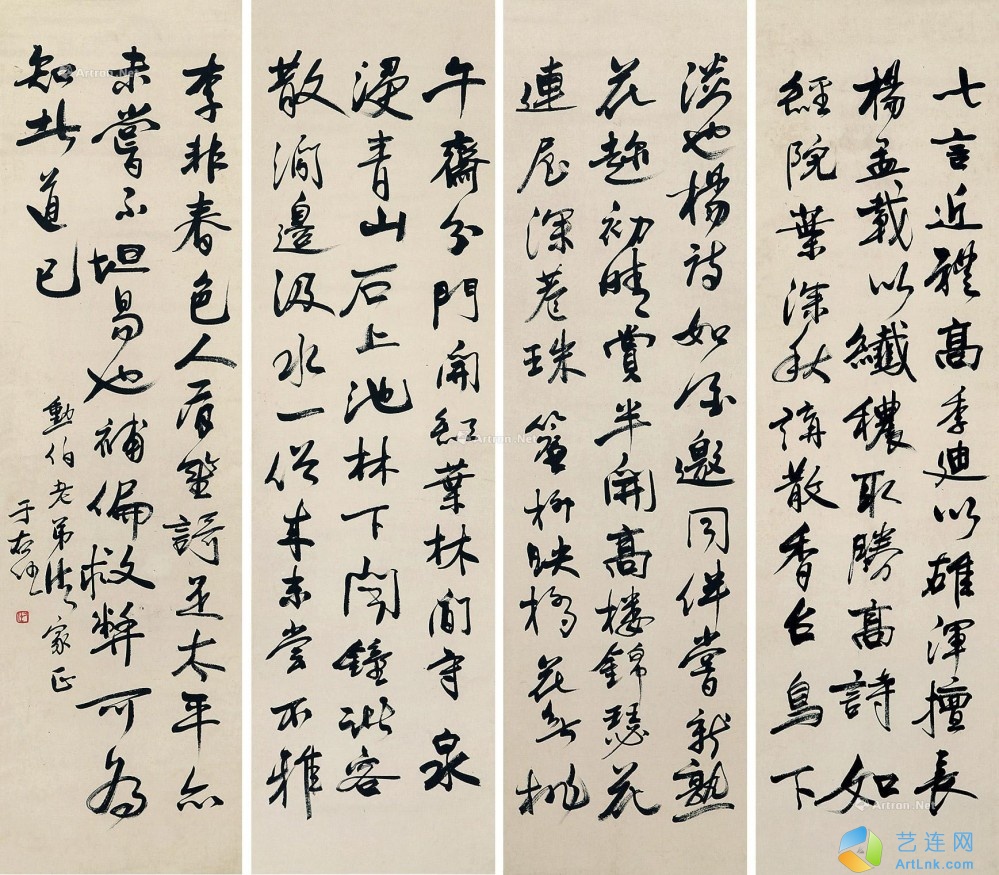 七言近體高季迪以雄渾擅長
楊孟載以纖穠取勝高詩如
經院葉深秋講散香台鳥下
淡也楊詩如邀同伴嘗新熟
花趁初晴賞半開高樓錦瑟花
連屋深巷珠簾柳映橋花無桃
午齋分門開紅葉林間寺泉
浸青山石上池林下聞鐘客
散澗邊汲水一僧來未嘗不雅
李非春色人有笙謌是太平亦
未嘗不坦易也補偏救弊可為
知此道已
勲伯老弟法家正
于右任
Artron.Net
Artron.Net
Artron.Net
艺连网
ArtLnk.com